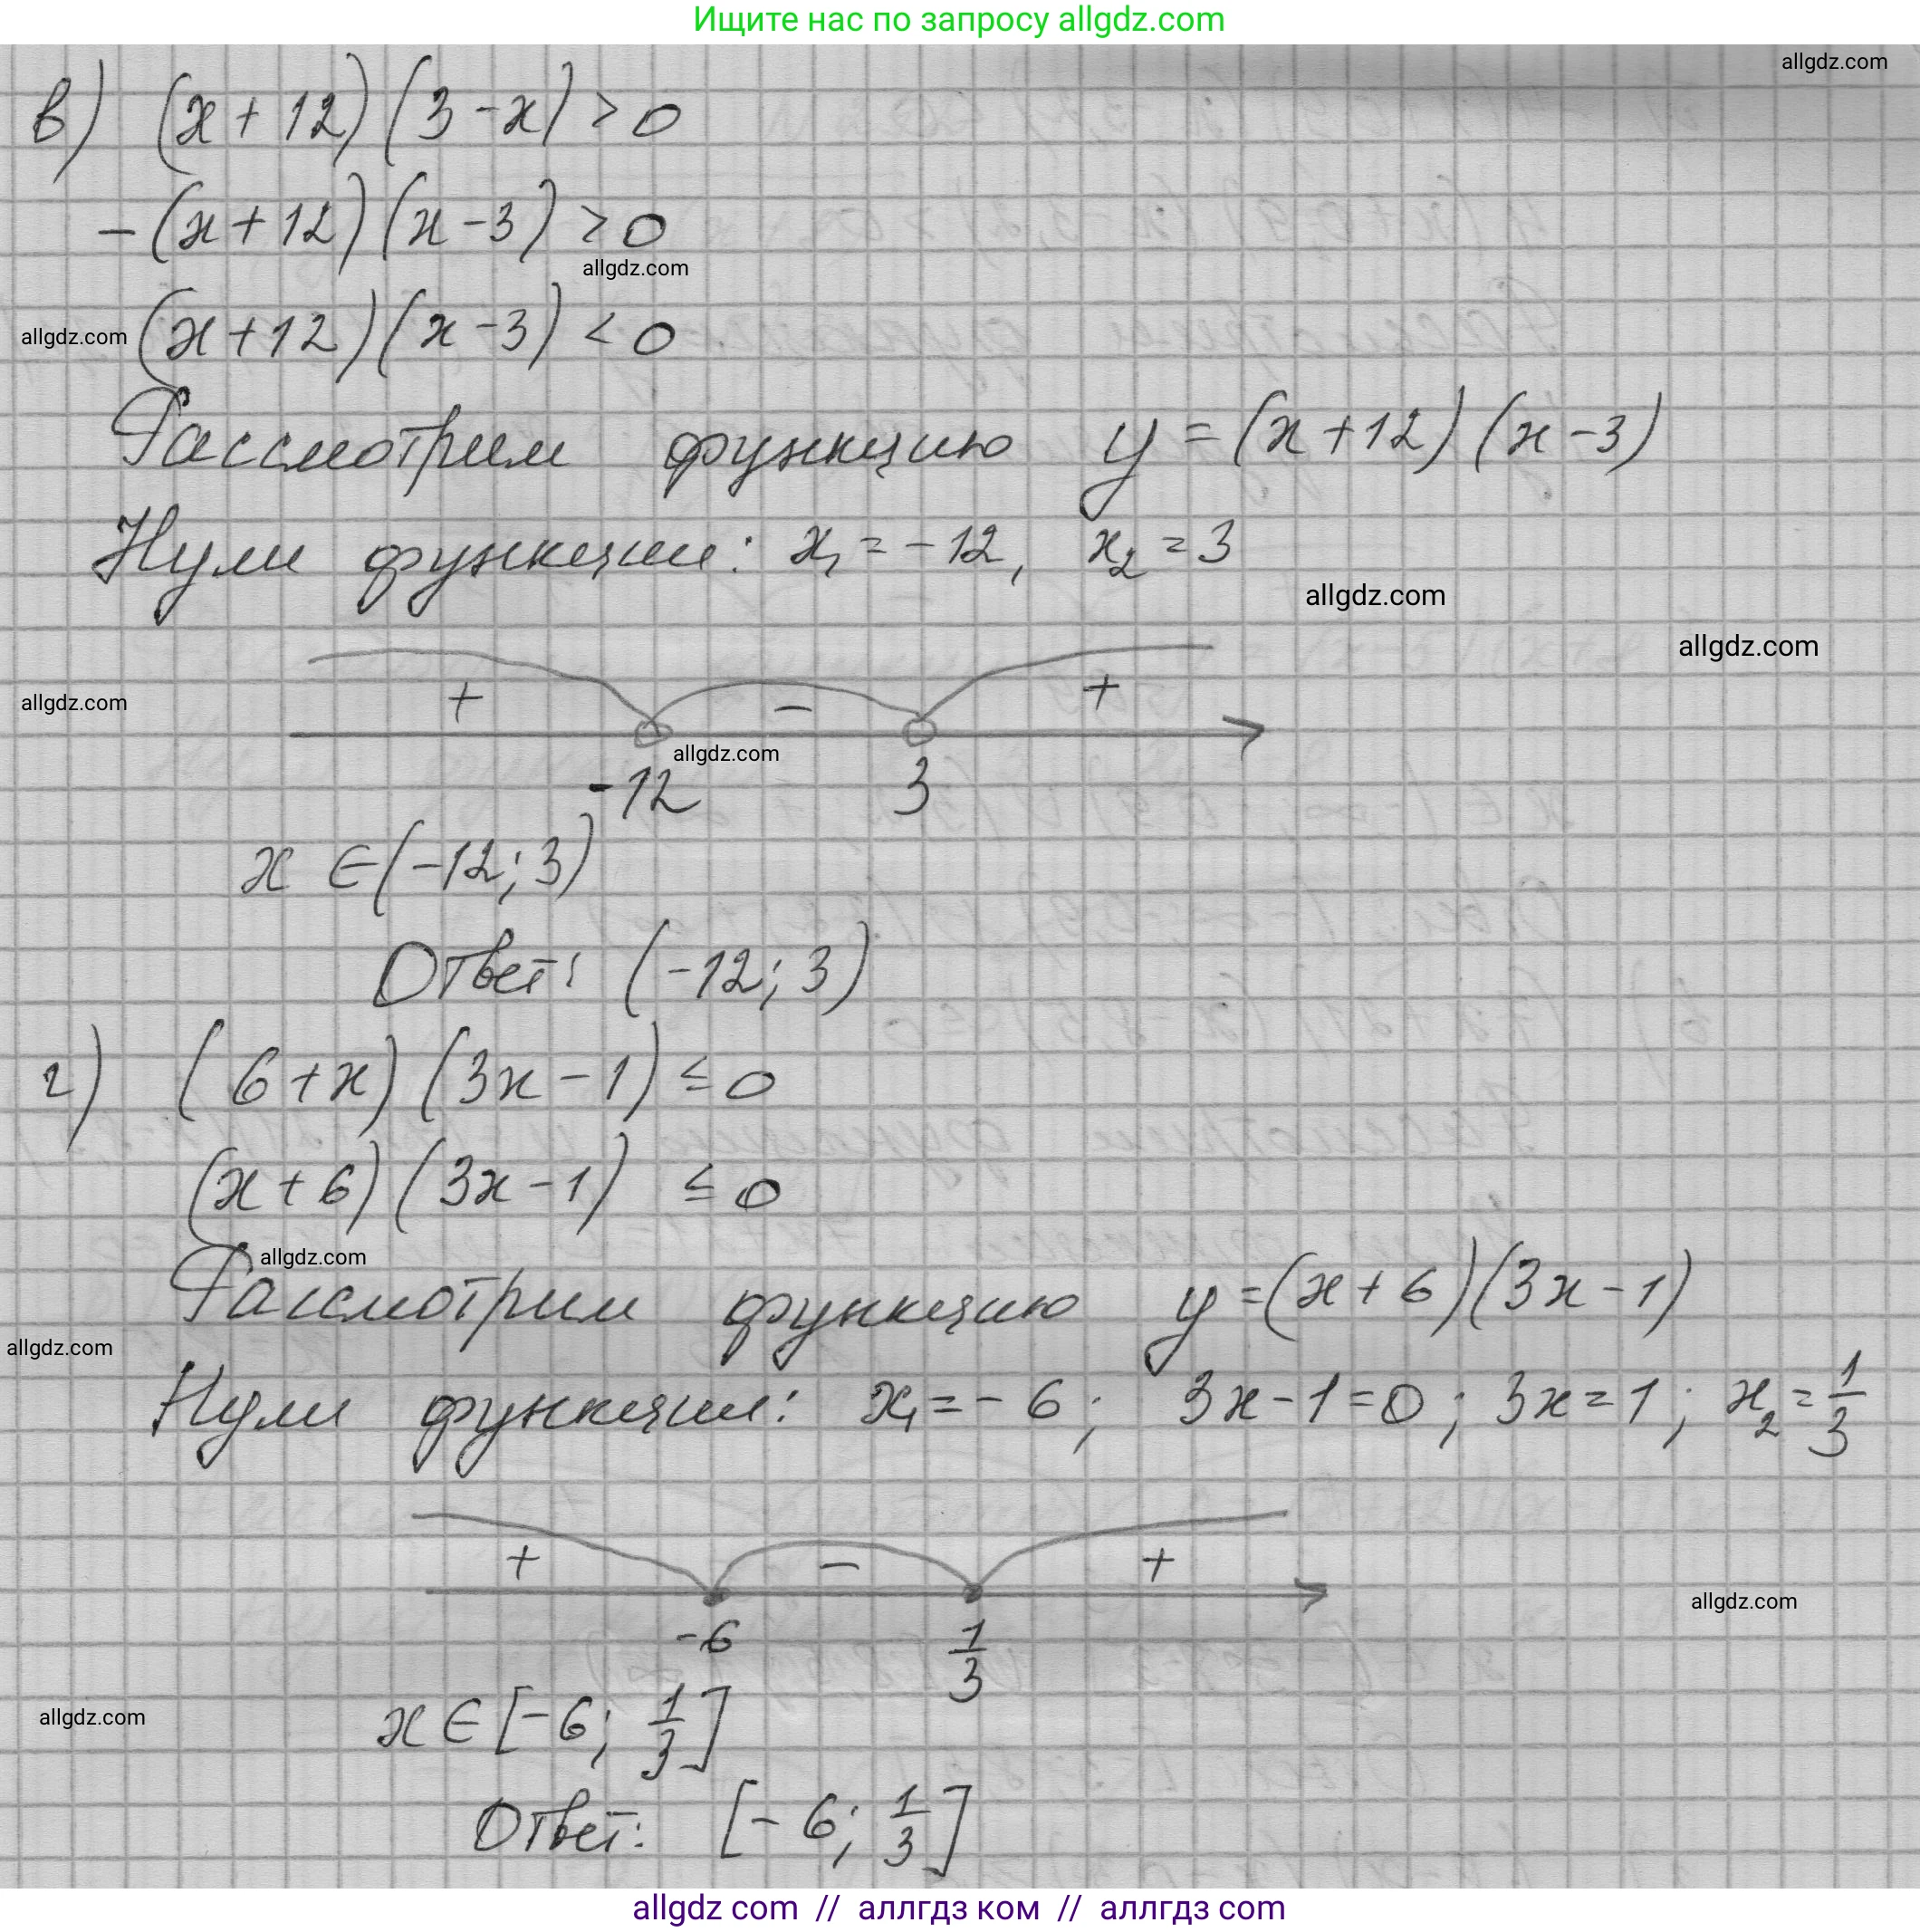 Ищите нас по запросу allgdz.com
allgdz.com
в) (x+12)(3-x)>0
-(x+12)(x-3)>0
allgdz.com
allgdz.com
(x+12)(x-3)<0
Рассмотрим функцию y=(x+12)(x-3)
Нули функции: x₁=-12, x₂=3
allgdz.com
allgdz.com
allgdz.com
+ - +
allgdz.com
-12 3
x∈(-12;3)
Ответ: (-12;3)
г) (6+x)(3x-1)≤0
(x+6)(3x-1)≤0
allgdz.com
Рассмотрим функцию y=(x+6)(3x-1)
allgdz.com
Нули функции: x₁=-6; 3x-1=0; 3x=1; x₂=1/3
+ - +
allgdz.com
-6 1/3
allgdz.com
x∈[-6; 1/3]
Ответ: [-6; 1/3]
allgdz com // аллгдз ком // аллгдз com